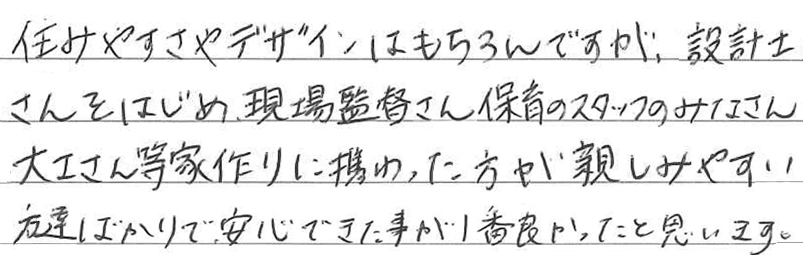 住みやすさやデザインはもちろんですが、設計士
さんをはじめ、現場監督さん保育のスタッフのみなさん
大工さん等家作りに携わった方が親しみやすい
友達ばかりで、安心できた事が1番良かったと思います。